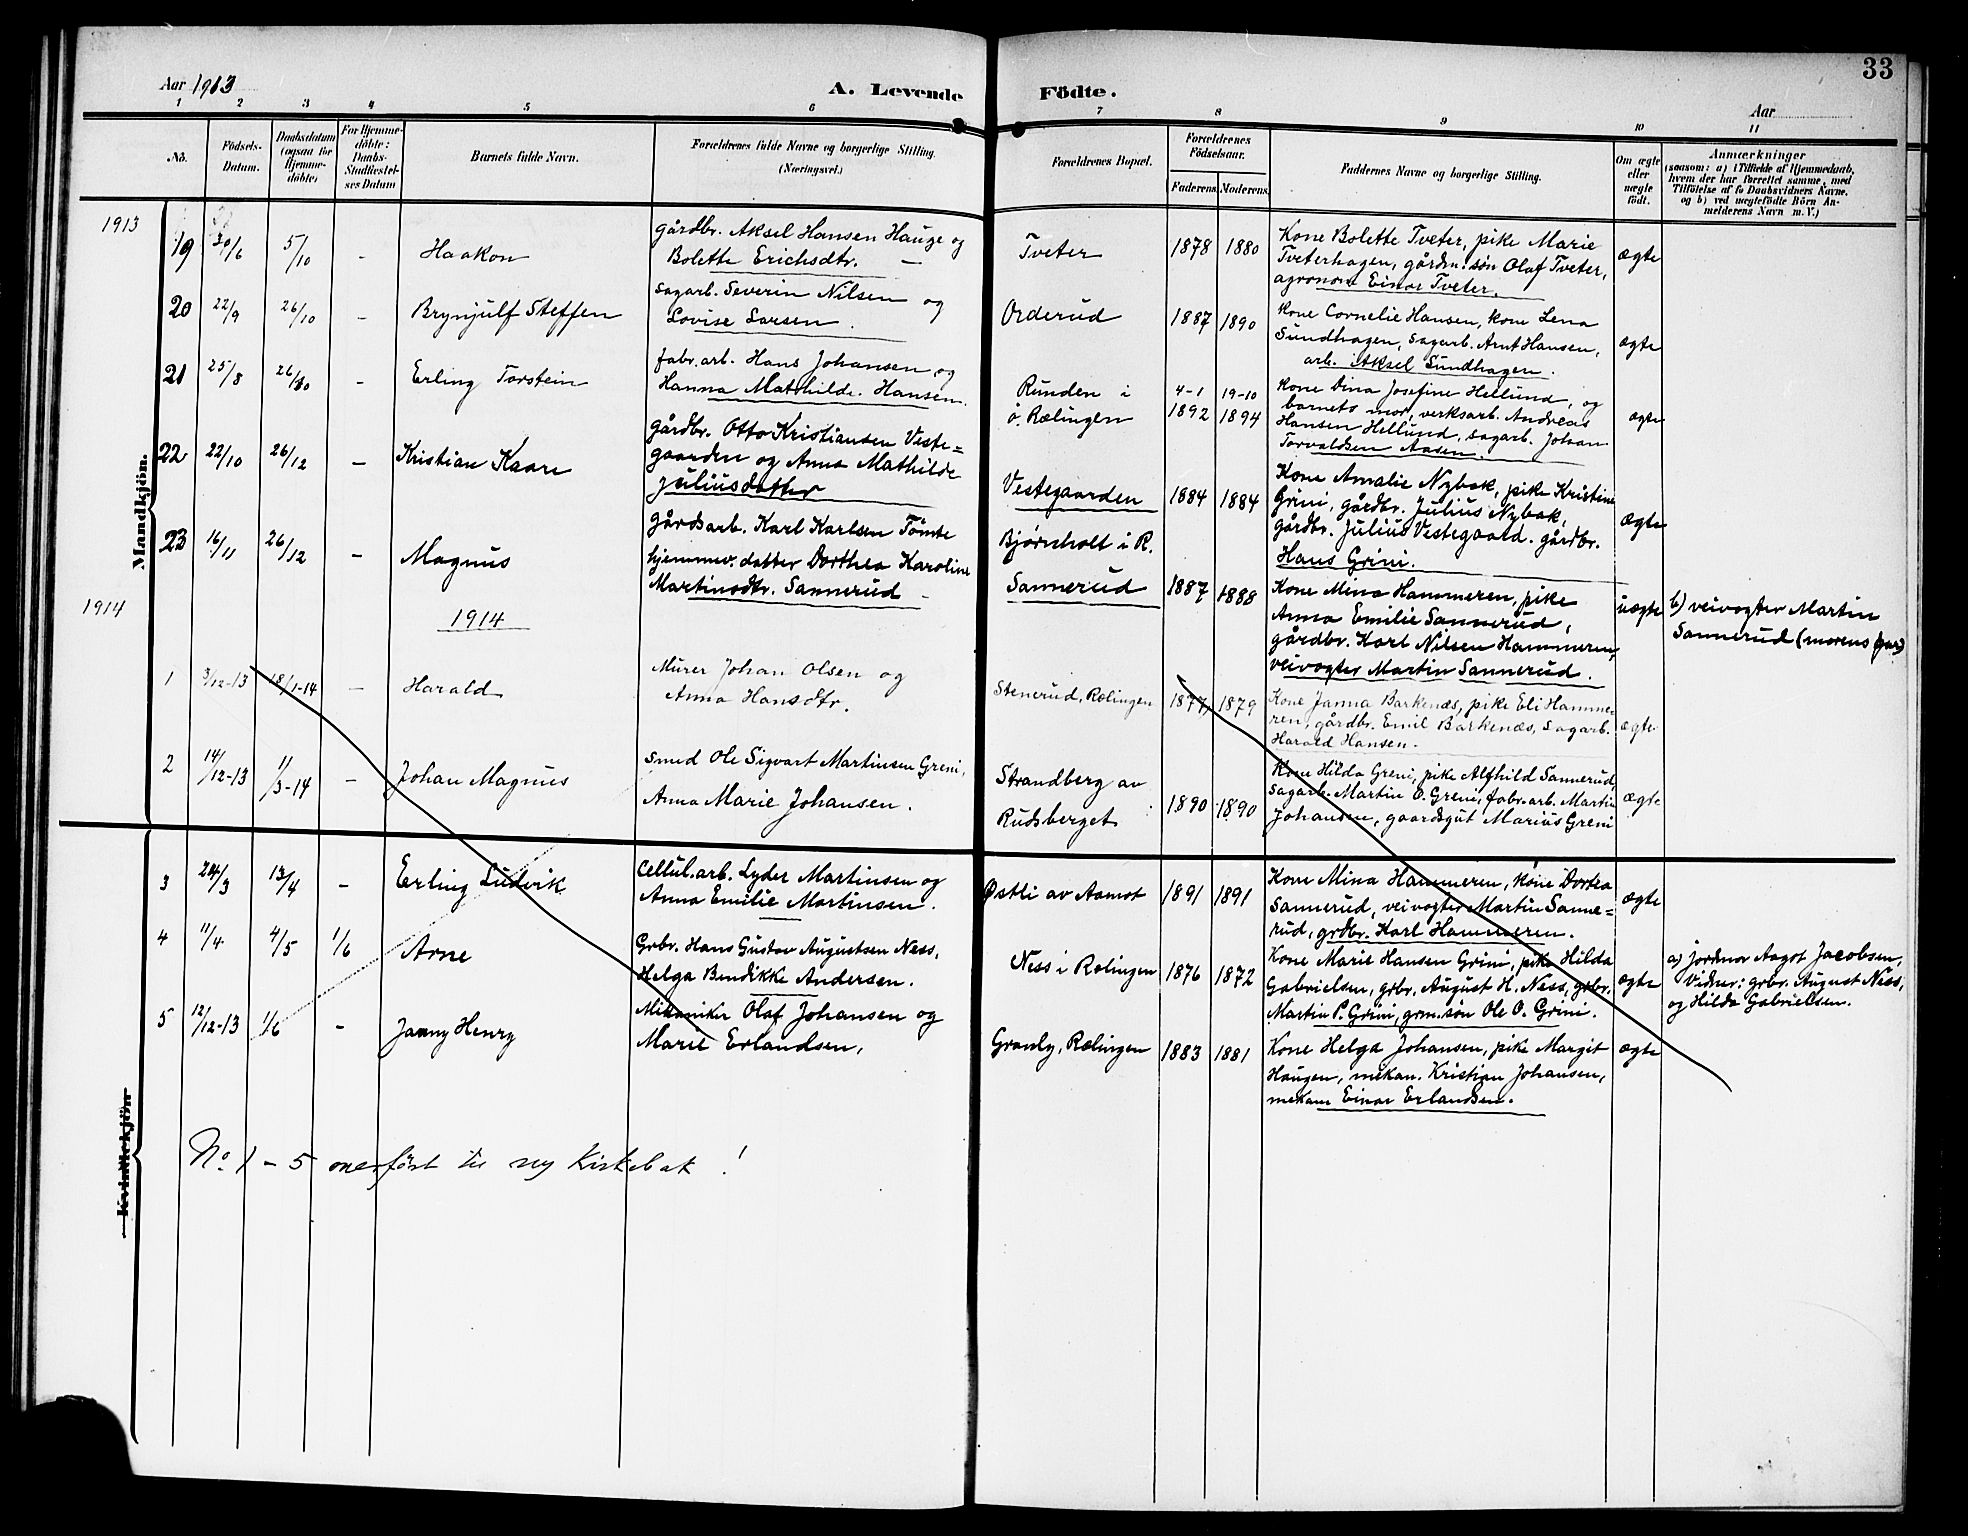 33
Aar 1913
A. Levende Födte.
Aar
1 2 3 4 5 6 7 8 9 10 11
No.
Födsels-Datum.
Daabsdatum (ogsaa for Hjemme-döbte)
For Hjemme-döbte: Daabs-Stadfæstel-ses Datum
Barnets fulde Navn.
Forældrenes fulde Navne og borgerlige Stilling. (Næringsvei.)
Forældrenes Bopæl.
Forældrenes Födselsaar.
Faderens. Moderens.
Faddernes Navne og borgerlige Stilling.
Om ægte eller uægte födt.
Anmærkninger
(saasom: a) i Tilfælde af Hjemmedaab,
hvem der har forrettet samme, med
Tilföielse af to Daabsvidners Navne.
og b) ved uægtefödte Börn An-
melderens Navn m. V.)
Mandkjön.
1913
19 30/6 5/10 - Haakon
gårdbr. Aksel Hansen Hauge og
Bolette Erichsdtr.
Tveter 1878 1880
Kone Bolette Tveter, pike Marie
Tveterhagen, gårdm. søn Olaf Tveter,
agronom Einar Tveter.
ægte
20 22/9 26/10 - Brynjulf Steffen
Sagarb. Severin Nilsen og
Lovise Larsen.
Orderud 1887 1890
Kone Cornelie Hansen, kone Lena
Sundhagen, sagarb. Arnt Hansen,
arb. Aksel Sundhagen.
ægte
21 25/8 26/10 - Erling Torstein
fabr. arb. Hans Johansen og
Hanna Mathilde Hansen.
Runden i
ö. Rælingen
4-1 1892 19-10 1894
Kone Dina Josefine Hellund, og
barnets mor, verksarb. Andreas
Hansen Hellund, sagarb. Johan
Torvaldsen Aasen.
ægte
22 22/10 26/12 - Kristian Kaare
gårdbr. Otto Kristiansen Veste=
gaarden og Anna Mathilde
Juliusdatter
Vestegaarden 1884 1884
Kone Amalie Nybak, pike Kristine
Grini, gårdbr. Julius Nybak,
gårdbr. Julius Vestegaard. gårdbr.
Hans Grini.
ægte
23 16/11 26/12 - Magnus
gårdsarb. Karl Karlsen Tömte
hjemmev. datter Dorthea Karoline
Martinsdtr. Sannerud -
Bjørnholt i R.
Sannerud 1887 1888
Kone Mina Hammeren, pike
Anna Emilie Sannerud,
gårdbr. Karl Nilsen Hammeren,
veivogter Martin Sannerud.
uægte
b) veivogter Martin
Sannerud (morens far)
1914
1914
1 3/12-13 18/1-14 - Harald
Murer Johan Olsen og
Anna Hansdtr.
Stenerud, Rælingen 1877 1879
Kone Janna Barkenæs, pike Eli Hamme-
ren, gårdbr. Emil Barkenæs, Sagarb.
Harald Hansen.
ægte
2 14/12-13 1/3-14 - Johan Magnus
Smed Ole Sigvart Martinsen Greni,
Anna Marie Johansen.
Strandberg av
Rudsberget 1890 1890
Kone Hilda Greni, pike Alfhild Sannerud,
Sagarb. Martin O. Greni, fabr. arb. Martin
Johansen, gaardsgut Marius Greni
ægte
Kvindekjön
3 24/3 13/4 - Erling Ludvik
Cellul. arb. Lyder Martinsen og
Anna Emilie Martinsen.
Østli av Aamot 1891 1891
Kone Mina Hammeren, kone Dortea
Sannerud, veivogter Martin Sanne=
rud, grdbr. Karl Hammeren.
ægte
4 11/4 4/5 1/6 Arne
Grbr. Hans Gustav Augustsen Ness,
Helga Bendikke Andersen.
Ness i Rælingen 1876 1872
Kone Marie Hansen Grini, pike Hilda
Gabrielsen, grbr. August H. Ness, grbr.
Martin P. Grini, grm. søn Ole O. Grini.
ægte
a) jordmor Aagot Jacobsen,
Vidner: grbr. August Ness,
og Hilda Gabrielsen.
5 12/12-13 1/6 - Janny Henry
Mekaniker Olaf Johansen og
Marie Erlandsen,
Granly, Rælingen 1883 1881
Kone Helga Johansen, pike Margit
Haugen, mekan. Kristian Johansen,
mekan Einar Erlandsen.
ægte
No. 1 - 5 overført til ny Kirkebok!